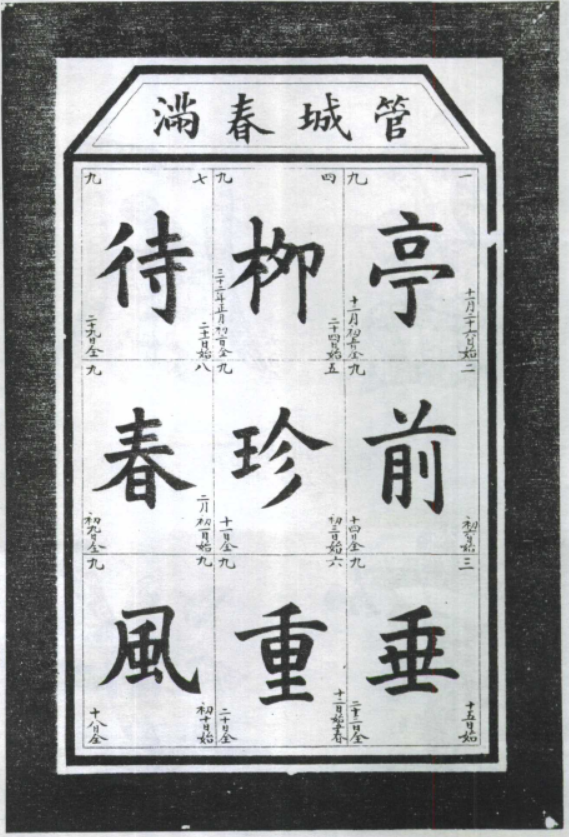 管城春滿
一九
亭
十一月二十六日始
十二月初五日全
二九
前
初六日始
十四日全
三九
垂
十五日始
二十三日全
四九
柳
二十四日始
三十二年正月初二日全
五九
珍
初三日始
十一日全
六九
重
十二日始立春
二十日全
七九
待
二十一日始
二十九日全
八九
春
二月初一日始
初九日全
九九
風
初十日始
十八日全